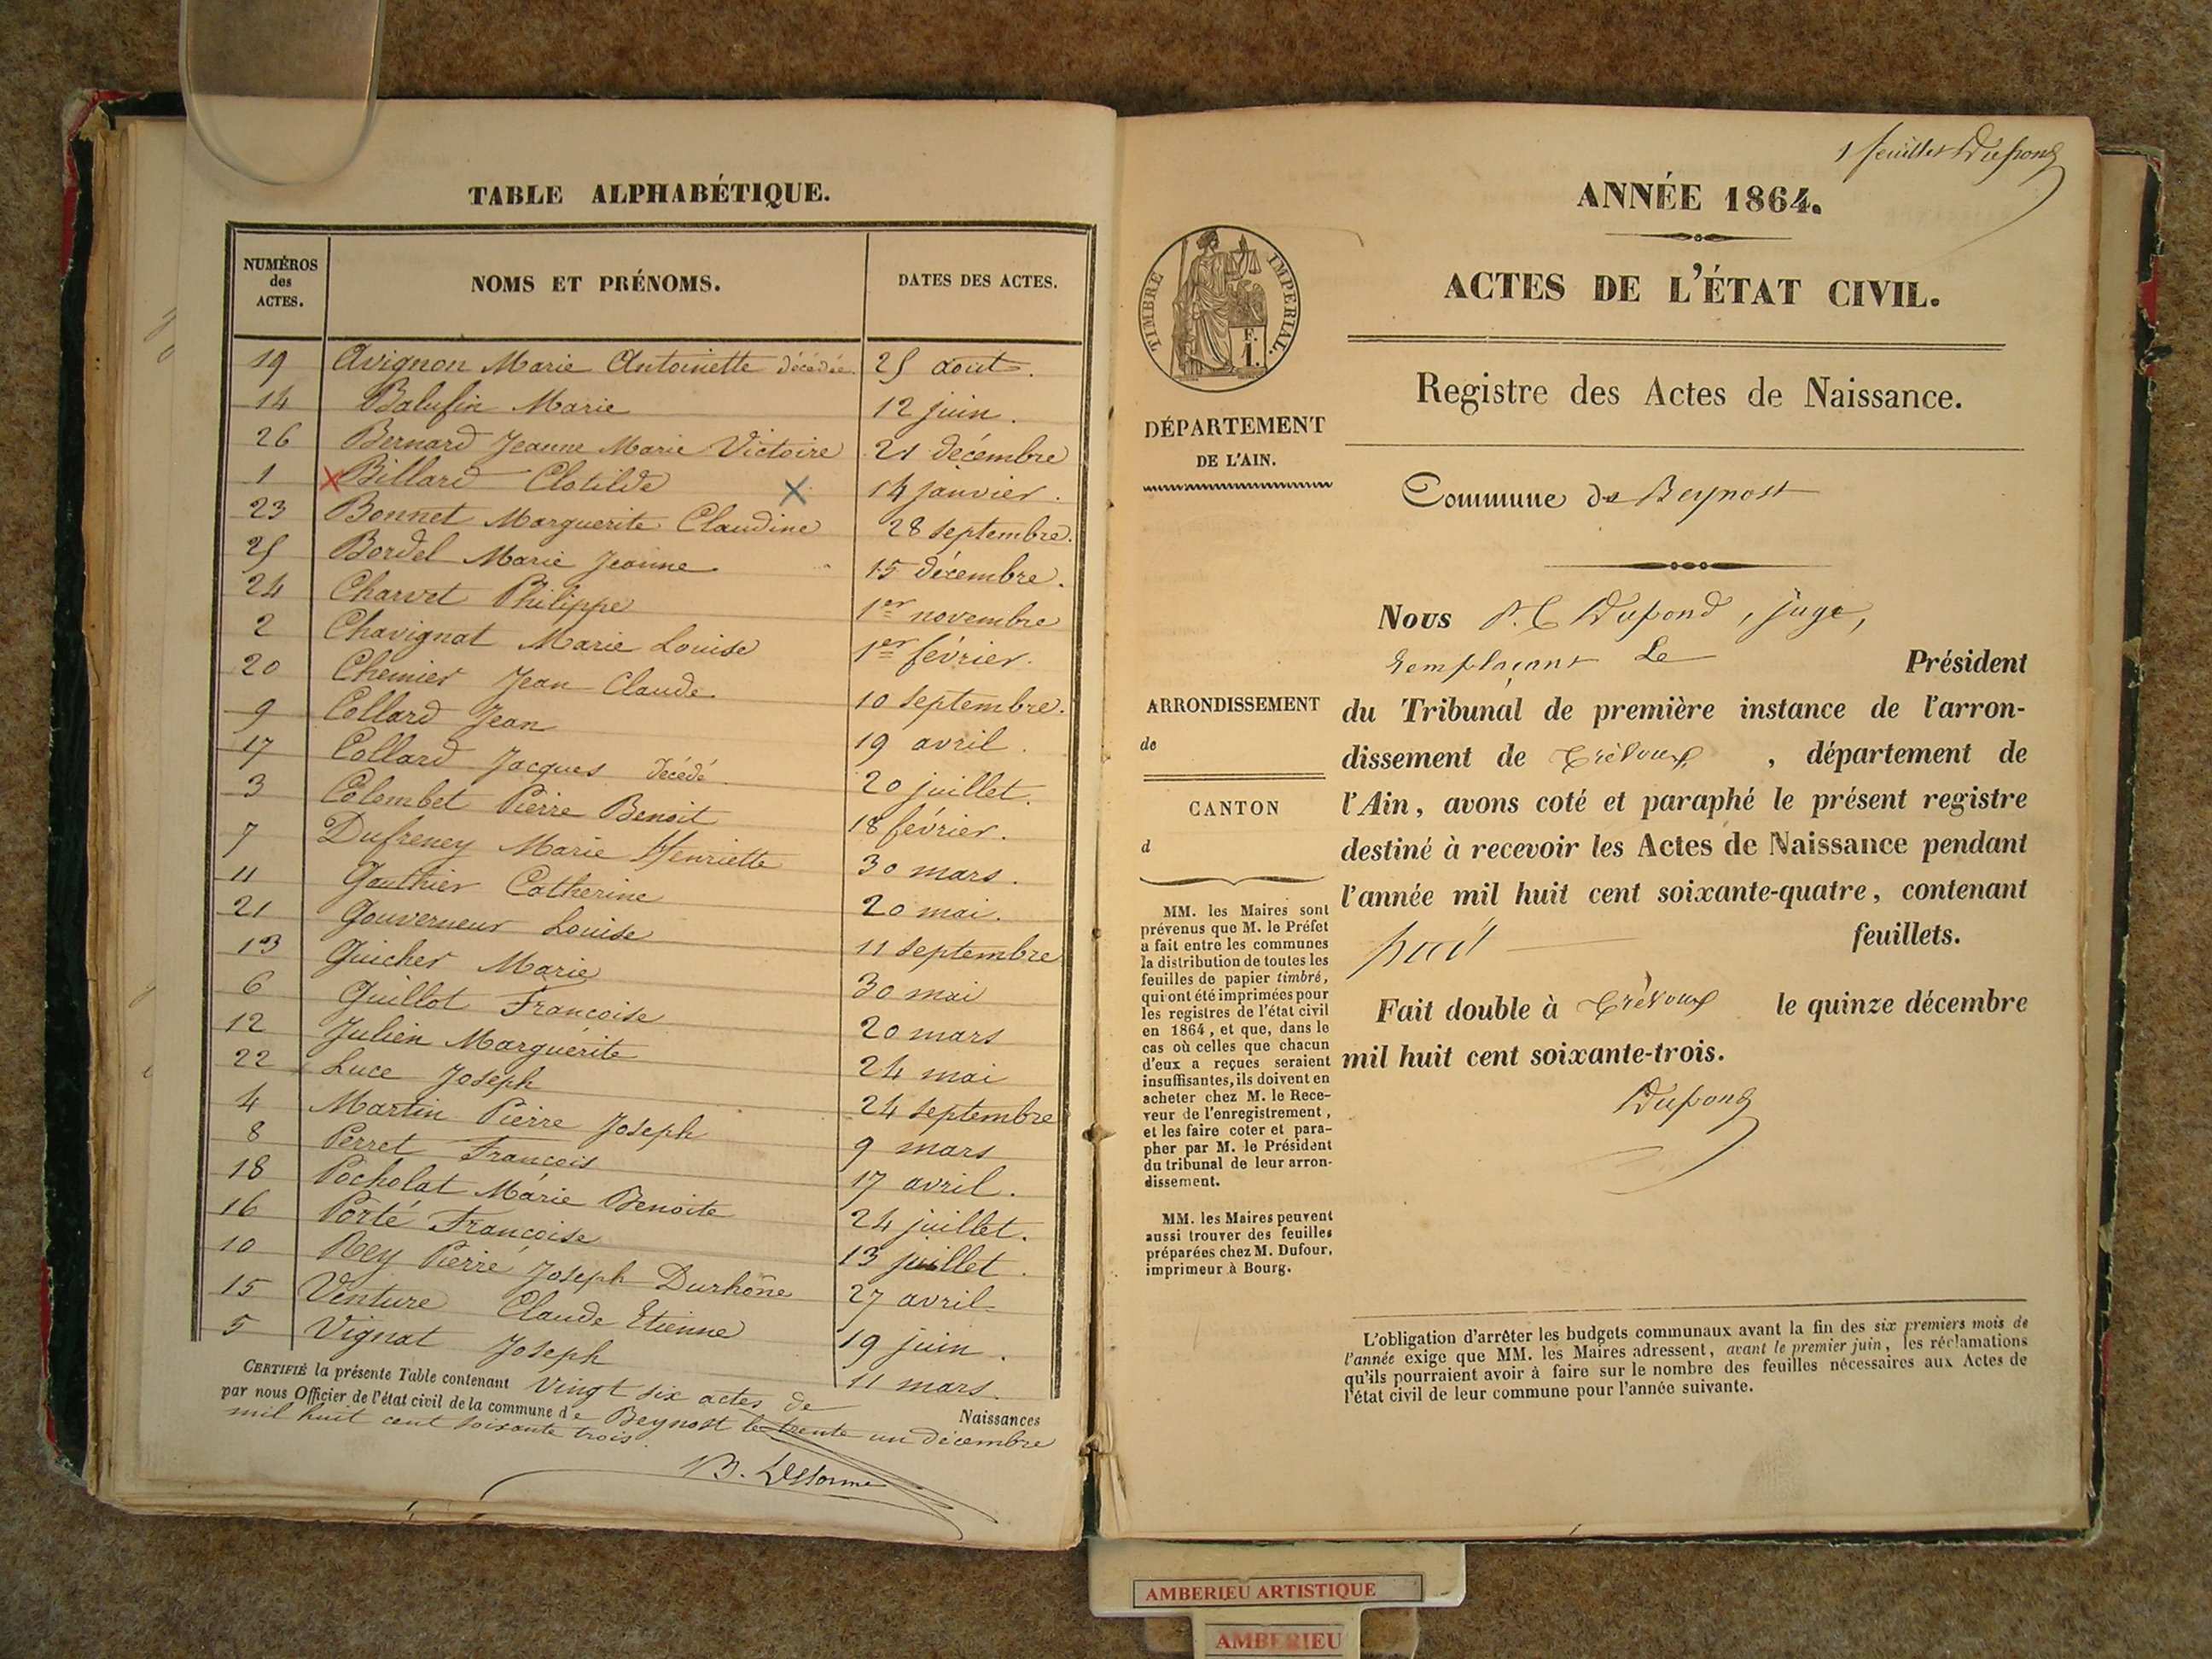 TABLE ALPHABÉTIQUE.
NUMÉROS des ACTES. NOMS ET PRÉNOMS. DATES DES ACTES.
19 Avignon Marie Antoinette décédée 25 août.
14 Balufin Marie 12 juin.
26 Bernard Jeanne Marie Victoire 21 décembre
1 Billard Clotilde 14 janvier.
23 Bonnet Marguerite Claudine 28 septembre.
25 Bordel Marie Jeanne 15 décembre.
24 Charvet Philippe 1er novembre
2 Chavignat Marie Louise 1er février.
20 Chemier Jean Claude. 10 septembre.
9 Collard Jean 19 avril.
17 Collard Jacques décédé 20 juillet.
3 Colombet Pierre Benoit 18 février.
7 Dufreney Marie Henriette 30 mars.
11 Gauthier Catherine 20 mai.
21 Gouverneur Louise 11 septembre
13 Guicher Marie 30 mai
6 Guillot Françoise 20 mars
12 Julien Marguerite 24 mai
22 Luce Joseph 24 septembre
4 Martin Pierre Joseph 9 mars
8 Perret François 17 avril.
18 Pocholat Marie Benoite 24 juillet.
16 Porté Françoise 13 juillet.
10 Rey Pierre Joseph Durhône 27 avril
15 Venture Claude Etienne 19 juin.
5 Vignat Joseph 11 mars.
CERTIFIÉ la présente Table contenant Vingt six actes de Naissances
par nous Officier de l'état civil de la commune de Beynost le trente un décembre
mil huit cent soixante trois.
1 feuillet Dupond
ANNÉE 1864.
ACTES DE L'ÉTAT CIVIL.
TIMBRE IMPÉRIAL.
F. 1.
Registre des Actes de Naissance.
DÉPARTEMENT
DE L'AIN.
Commune de Beynost
ARRONDISSEMENT
de
CANTON
d
MM. les Maires sont
prévenus que M. le Préfet
a fait entre les communes
la distribution de toutes les
feuilles de papier timbré,
qui ont été imprimées pour
les registres de l'état civil
en 1864, et que, dans le
cas où celles que chacun
d'eux a reçues seraient
insuffisantes, ils doivent en
acheter chez M. le Rece-
veur de l'enregistrement,
et les faire coter et para-
pher par M. le Président
du tribunal de leur arron-
dissement.
MM. les Maires peuvent
aussi trouver des feuilles
préparées chez M. Dufour,
imprimeur à Bourg.
Nous Dupond, juge,
remplaçant Le Président
du Tribunal de première instance de l'arron-
dissement de Trévoux, département de
l'Ain, avons coté et paraphé le présent registre
destiné à recevoir les Actes de Naissance pendant
l'année mil huit cent soixante-quatre, contenant
huit feuillets.
Fait double à Trévoux le quinze décembre
mil huit cent soixante-trois.
Dupond
L'obligation d'arrêter les budgets communaux avant la fin des six premiers mois de
l'année exige que MM. les Maires adressent, avant le premier juin, les réclamations
qu'ils pourraient avoir à faire sur le nombre des feuilles nécessaires aux Actes de
l'état civil de leur commune pour l'année suivante.
AMBERIEU ARTISTIQUE
AMBERIEU